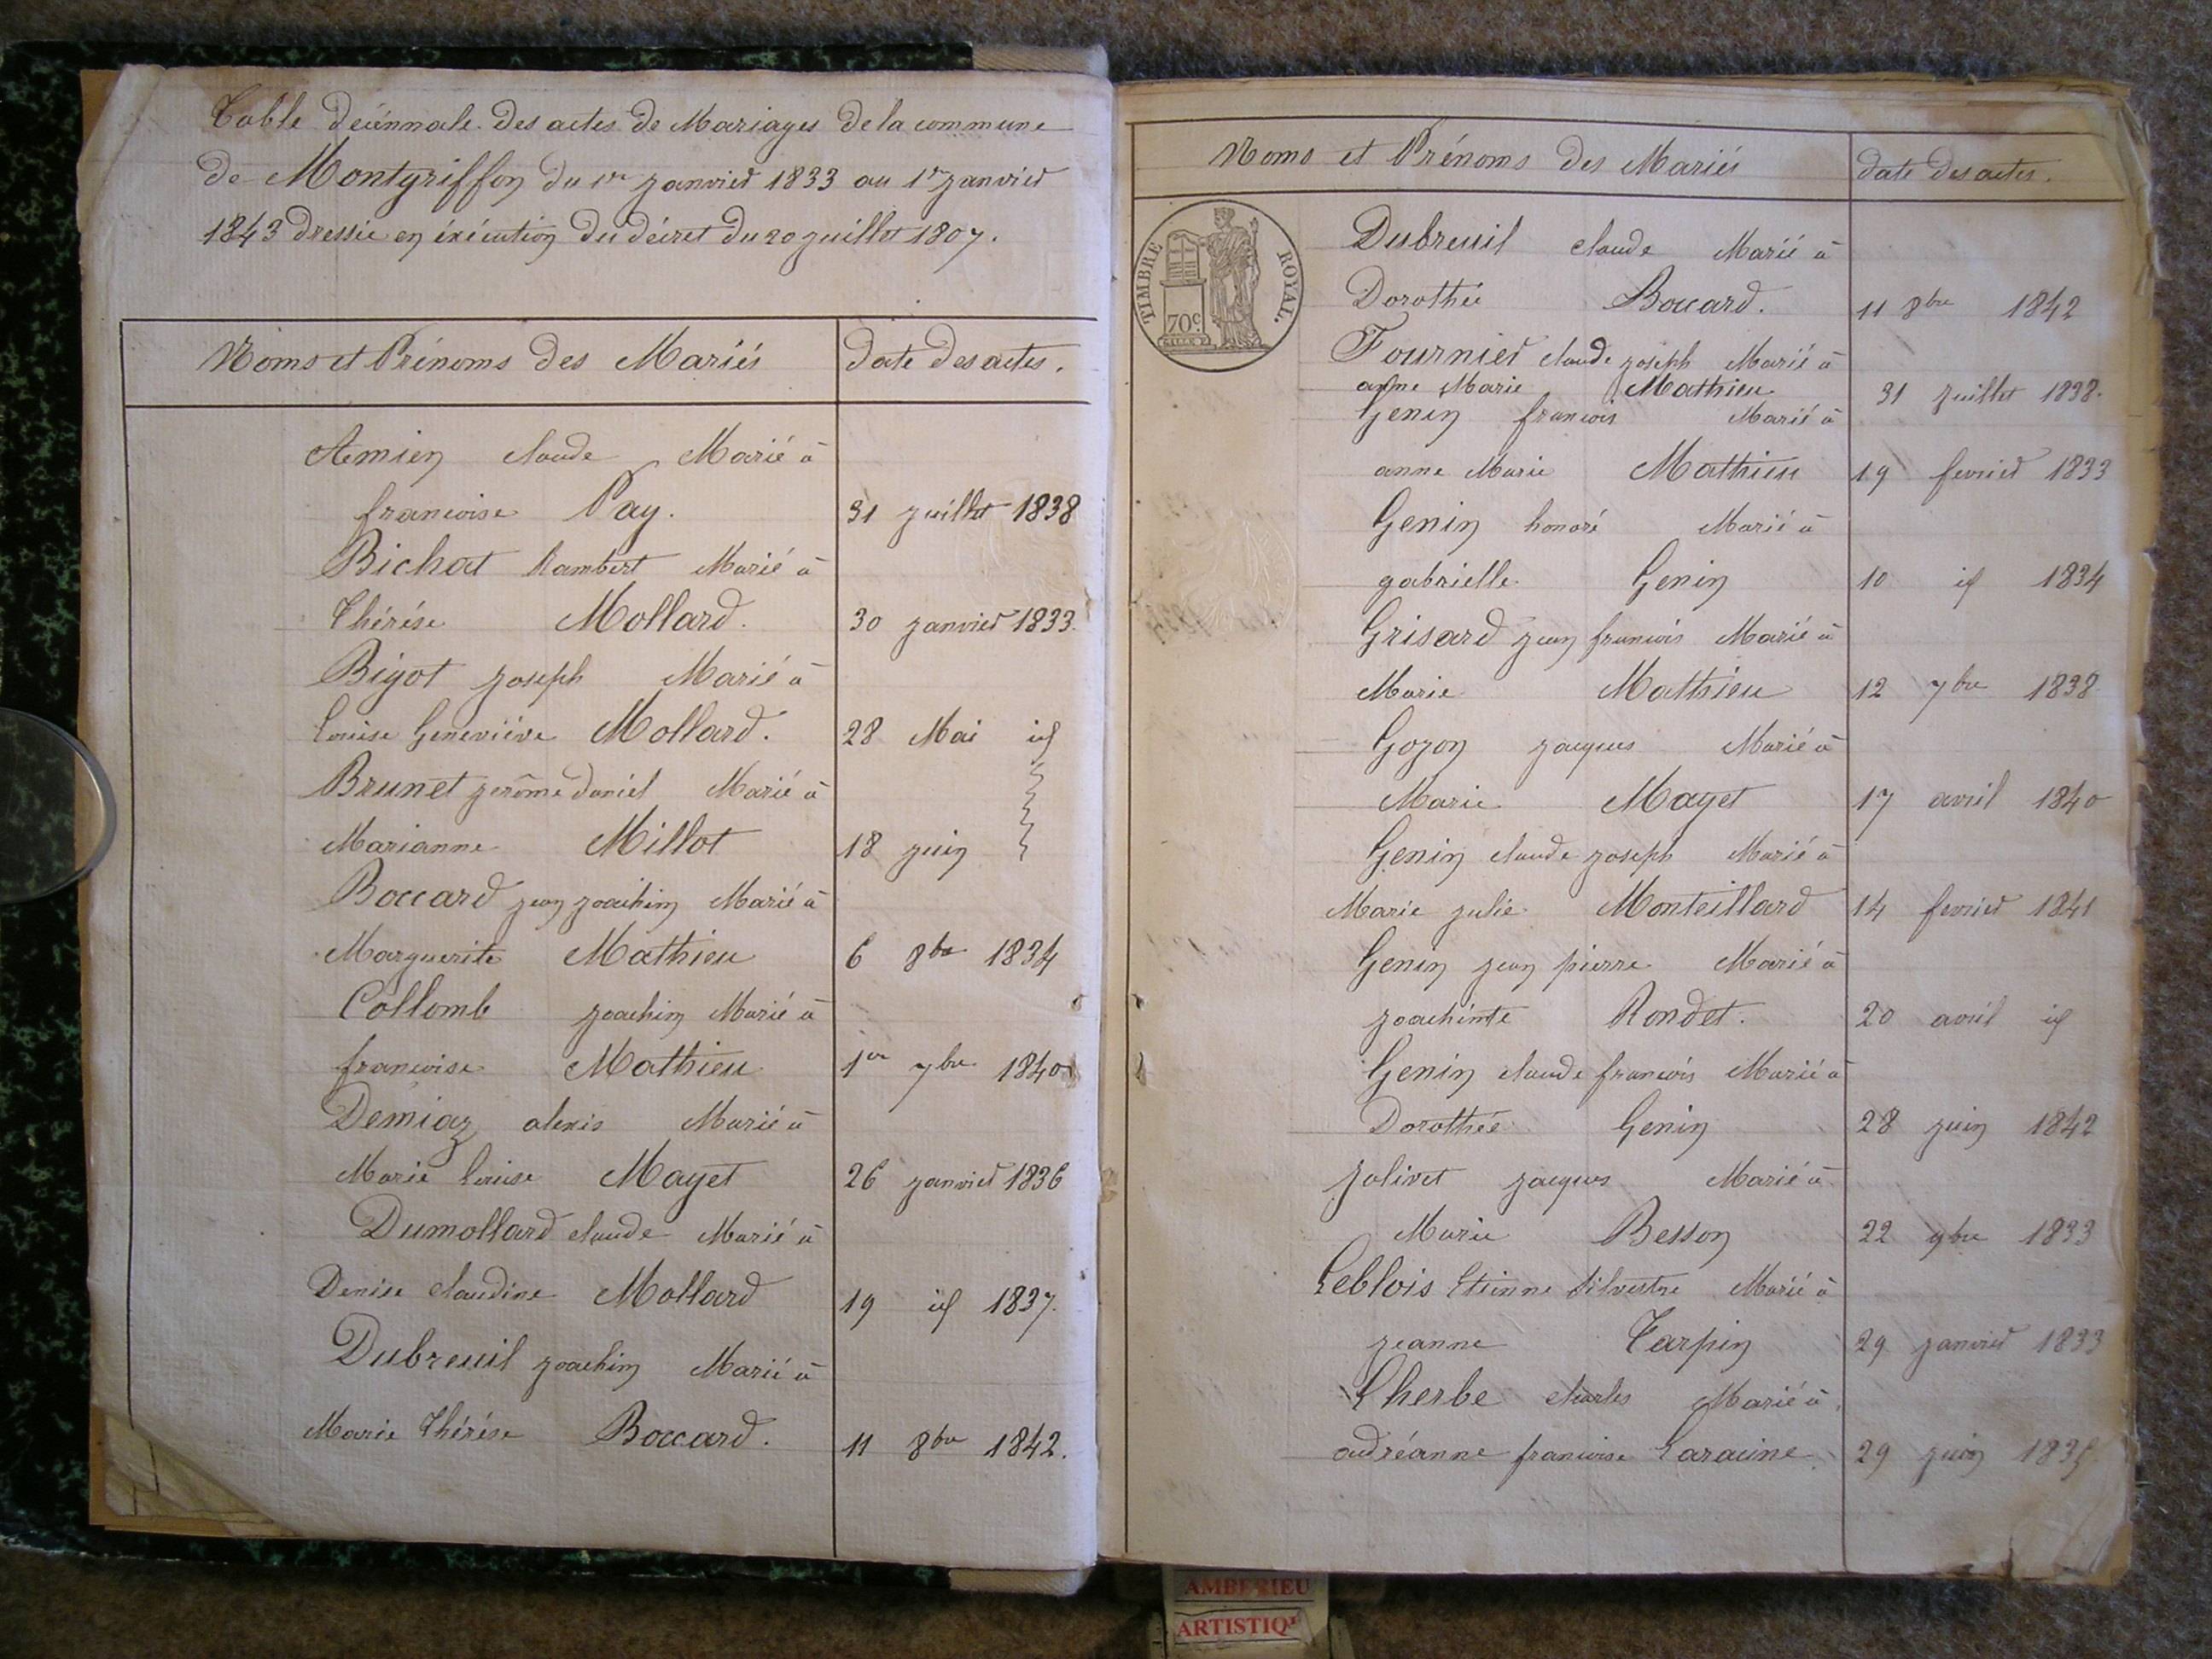 Table décennale des actes de Mariages de la commune
de Montgriffon du 1er janvier 1833 au 1er janvier
1843 dressée en éxécution du décret du 20 juillet 1807.
Noms et Prénoms des Mariés date des actes.
Amien claude Marié à
francoise Pay. 31 juillet 1838
Bichat Rambert Marié à
Thérése Mollard. 30 janvier 1833.
Bigot joseph Marié à
Louise Geneviéve Mollard. 28 Mai id
Brunet jerôme daniel Marié à
Marianne Millot 18 juin
Boccard jean joachim Marié à
Marguerite Mathieu 6 8bre 1834
Collomb joachim Marié à
francoise Mathieu 1er 7bre 1840
Demiaz alexis Marié à
Marie Louise Mayet 26 janvier 1836
Dumollard claude Marié à
Denise claudine Mollard 19 id 1837.
Dubreuil joachim Marié à
Marie Thérése Boccard. 11 8bre 1842.
Noms et Prénoms des Mariés date des actes.
TIMBRE ROYAL.
70c.
Dubreuil claude Marié à
Dorothée Boccard. 11 8bre 1842
Fournier claude joseph Marié à
anne Marie Mathieu 31 juillet 1838.
Genin francois Marié à
anne Marie Mathieu 19 fevrier 1833
Genin honoré Marié à
gabrielle Genin 10 id 1834
Grisard jean francois Marié à
Marie Mathieu 12 7bre 1838
Gozon jacques Marié à
Marie Mayet 17 avril 1840
Genin claude joseph Marié à
Marie julie Monteillard 14 fevrier 1841
Genin jean pierre Marié à
joachimte Rondet. 20 avril id
Genin claude francois Marié à
Dorothée Genin 28 juin 1842
jolivet jacques Marié à
Marie Besson 22 9bre 1833
Leblois Etienne Silvestre Marié à
jeanne Tarpin 29 janvier 1833
Lherbe charles Marié à
audréanne francoise Laracine 29 juin
AMBERIEU
ARTISTIQ